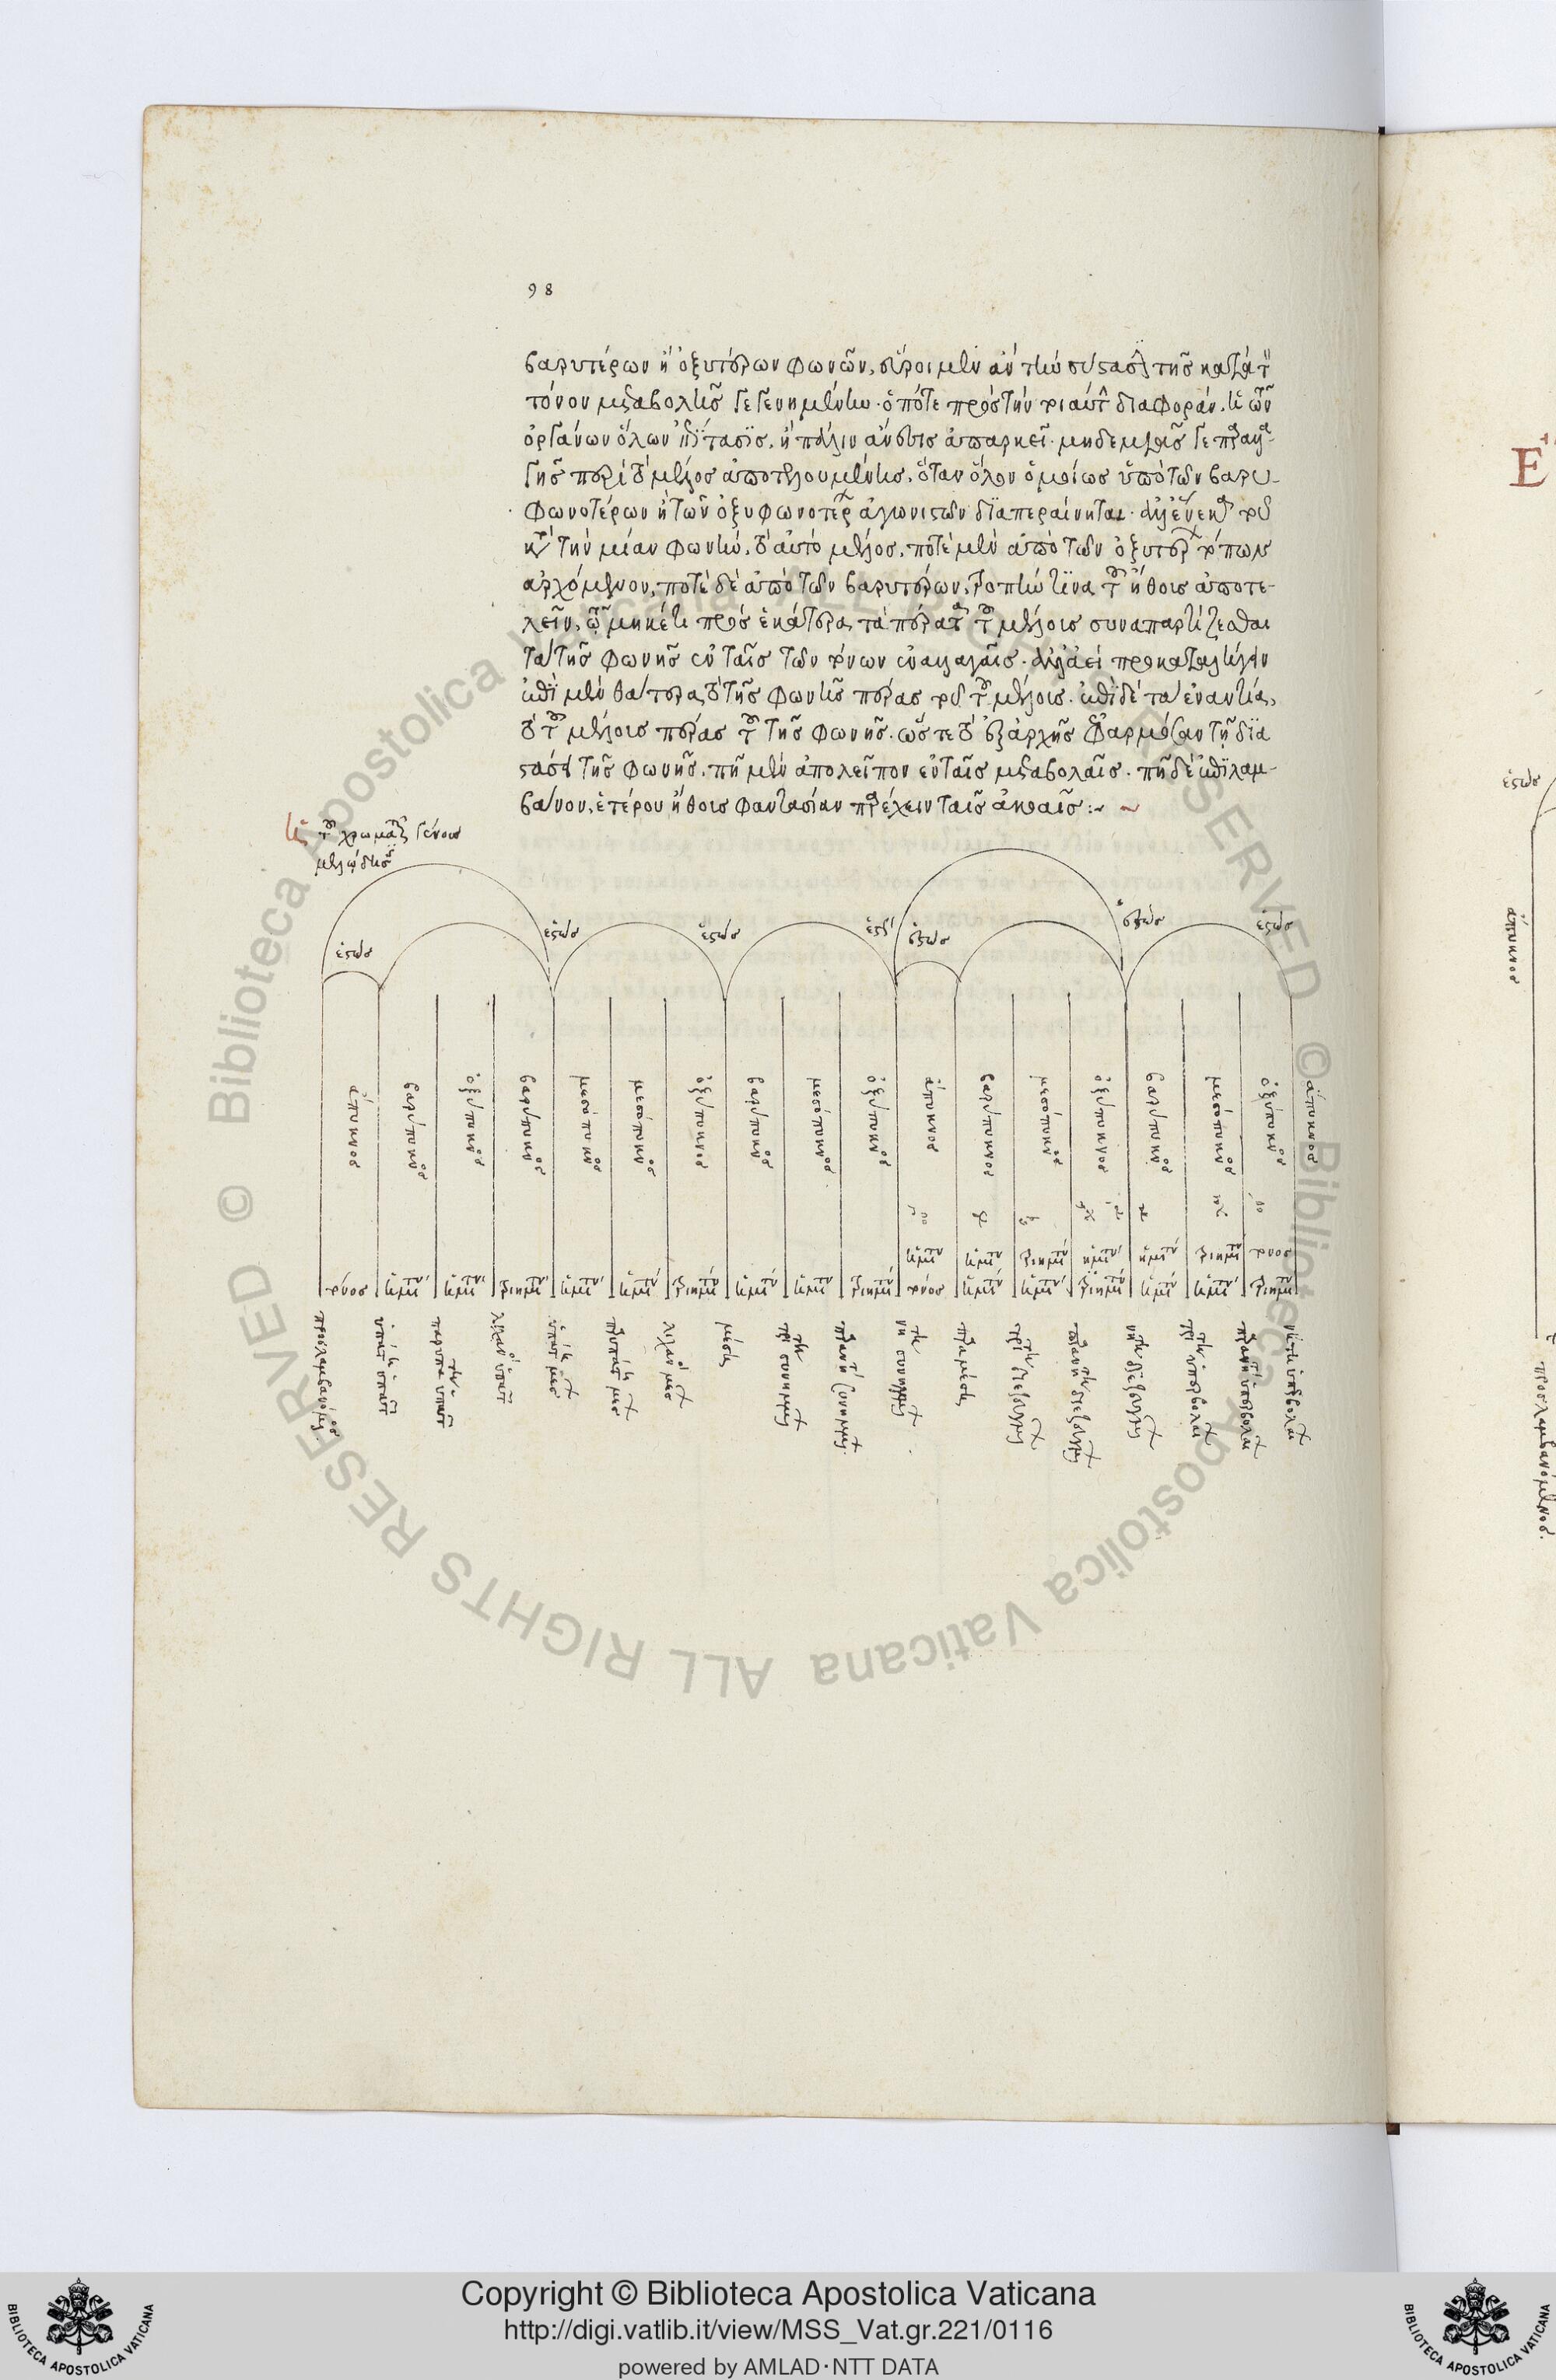 98
βαρυτέρων ἢ ὀξυτέρων φωνῶν, εὕροι μὲν ἂν τὴν σύστασιν τῆς κατὰ τὸν
τόνον μεταβολῆς γεγενημένην. ὁπότε πρὸς τὴν τοιαύτην διαφορὰν, ἢ τῶν
ὀργάνων ὅλων ἐπίτασις, ἢ πάλιν ἄνεσις ἀπαρκεῖ. μηδεμιᾶς γε παραλλα-
γῆς περὶ τὸ μέλος ἀποτελουμένης, ὅταν ὅλον ὁμοίως ὑπὸ τῶν βαρυ-
φωνοτέρων ἢ τῶν ὀξυφωνοτέρων ἀγωνιστῶν διαπεραίνηται. ἀλλ' ἕνεκα τοῦ
κατὰ τὴν μίαν φωνὴν, τὸ αὐτὸ μέλος, ποτὲ μὲν ἀπὸ τῶν ὀξυτέρων τόπων
ἀρχόμενον, ποτὲ δὲ ἀπὸ τῶν βαρυτέρων, τροπήν τινα τοῦ ἤθους ἀποτε-
λεῖν, τῷ μηκέτι πρὸς ἑκάτερα τὰ πέρατα τοῦ μέλους συναπαρτίζεσθαι
τὰ τῆς φωνῆς ἐν ταῖς τῶν τόνων ἐναλλαγαῖς. ἀλλ' ἀεὶ προκαταλήγειν
ἐπὶ μὲν θάτερα, τὸ τῆς φωνῆς πέρας τοῦ τοῦ μέλους. ἐπὶ δὲ τὰ ἐναντία,
τὸ τοῦ μέλους πέρας τοῦ τῆς φωνῆς. ὥστε τὸ ἐξ ἀρχῆς ἐφαρμόσαν τῇ δια
στάσει τῆς φωνῆς, πῇ μὲν ἀπολεῖπον ἐν ταῖς μεταβολαῖς. πῇ δὲ ἐπιλαμ-
βάνον, ἑτέρου ἤθους φαντασίαν παρέχειν ταῖς ἀκοαῖς:~
τοῦ χρωματικοῦ γένους
μελῳδίας
ἑστώς
ἑστώς
ἑστώς
ἑστώς
ἑστώς
ἑστώς
ἄπυκνος
βαρύπυκνος
ὀξύπυκνος
βαρύπυκνος
μεσόπυκνος
μεσόπυκνος
ὀξύπυκνος
βαρύπυκνος
μεσόπυκνος
ὀξύπυκνος
ἄπυκνος
βαρύπυκνος
μεσόπυκνος
ὀξύπυκνος
βαρύπυκνος
μεσόπυκνος
ὀξύπυκνος
ἄπυκνος
ἡμιτόνιον ἡμιτόνιον τριημιτόνιον ἡμιτόνιον ἡμιτόνιον τριημιτόνιον τόνος
τόνος ἡμιτόνιον ἡμιτόνιον τριημιτόνιον ἡμιτόνιον ἡμιτόνιον τριημιτόνιον ἡμιτόνιον ἡμιτόνιον τριημιτόνιον τόνος ἡμιτόνιον ἡμιτόνιον τριημιτόνιον ἡμιτόνιον ἡμιτόνιον τριημιτόνιον
προσλαμβανόμενος
ὑπάτη ὑπατῶν
παρυπάτη ὑπατῶν
λιχανὸς ὑπατῶν
ὑπάτη μέσων
παρυπάτη μέσων
λιχανὸς μέσων
μέση
τρίτη συνημμένων
παρανήτη συνημμένων
νήτη συνημμένων
παραμέση
τρίτη διεζευγμένων
παρανήτη διεζευγμένων
νήτη διεζευγμένων
τρίτη ὑπερβολαίων
παρανήτη ὑπερβολαίων
νήτη ὑπερβολαίων
Ε
ἑστώς
ἄπυκνος
προσλαμβανόμενος.
Copyright © Biblioteca Apostolica Vaticana
http://digi.vatlib.it/view/MSS_Vat.gr.221/0116
powered by AMLAD·NTT DATA
BIBLIOTECA APOSTOLICA VATICANA
BIBLIOTECA APOSTOLICA VATICANA
© Biblioteca Apostolica Vaticana ALL RIGHTS RESERVED
© Biblioteca Apostolica Vaticana ALL RIGHTS RESERVED